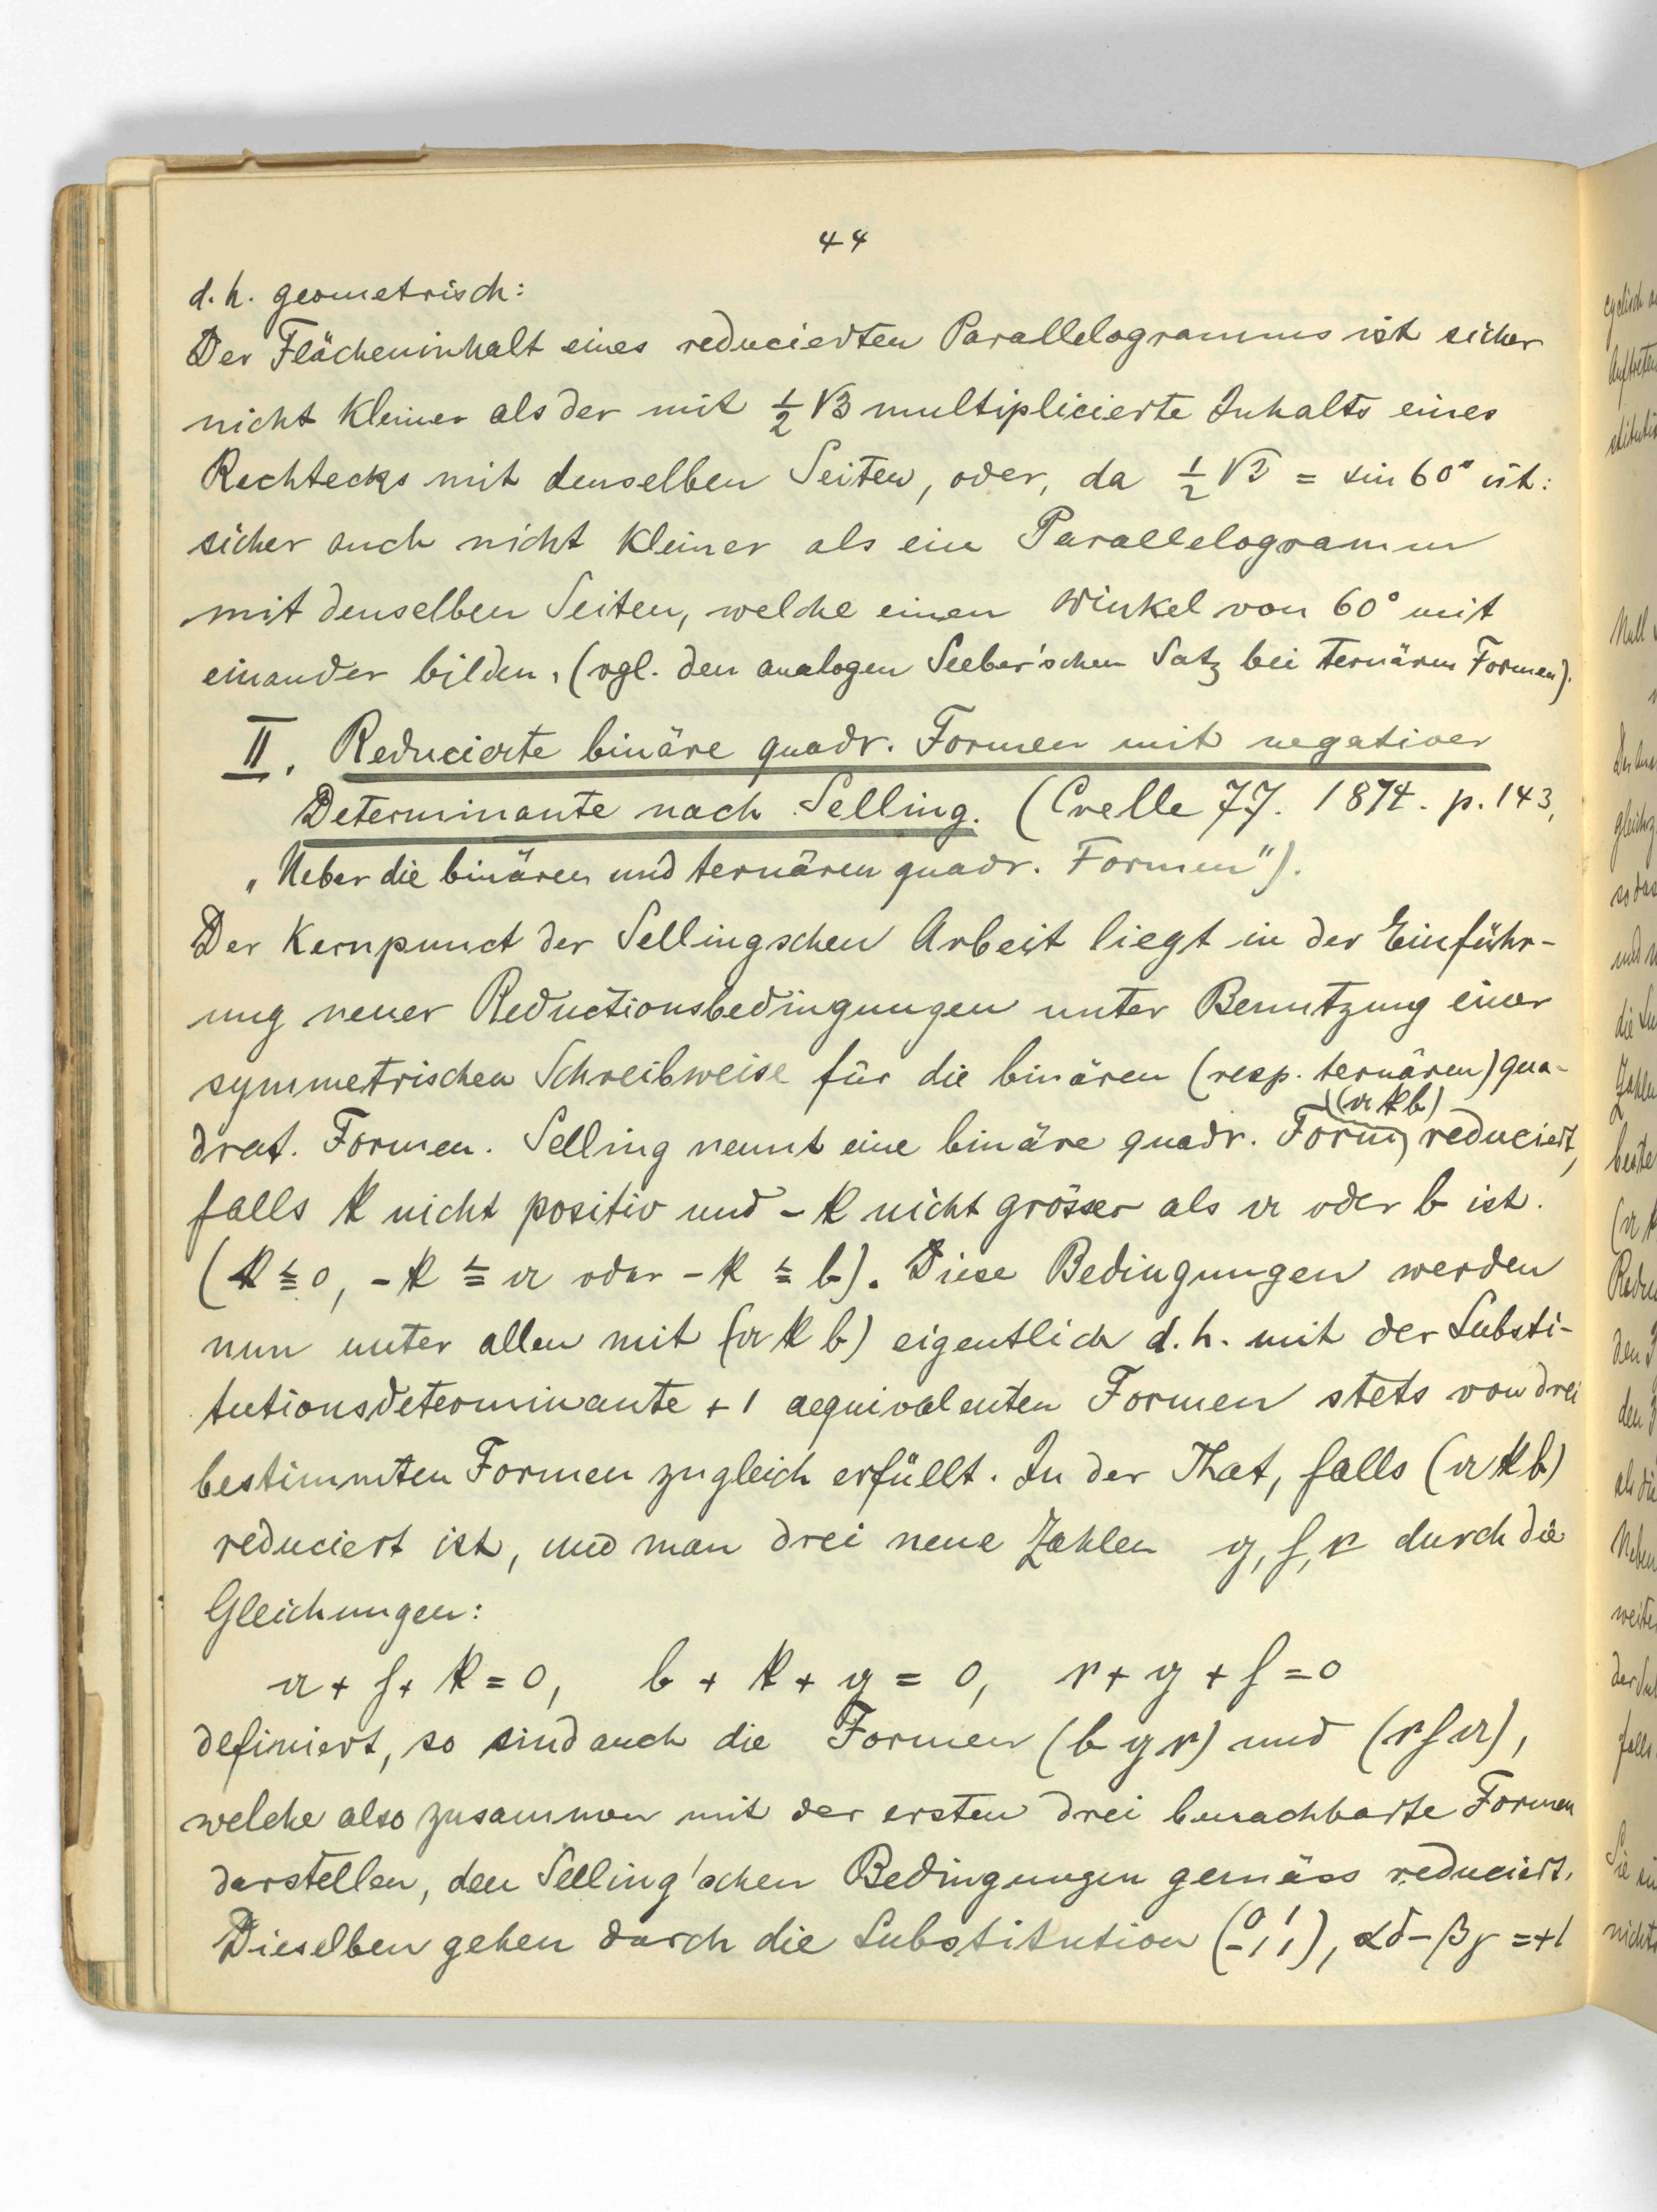 44
d. h. geometrisch:
Der Flächeninhalt eines reducierten Parallelogramms ist sicher
nicht kleiner als der mit ½ √3 multiplicierte Inhalts eines
Rechtecks mit denselben Seiten, oder, da ½ √3 = sin 60° ist:
sicher auch nicht kleiner als ein Parallelogramm
mit denselben Seiten, welche einen Winkel von 60° mit
einander bilden, (vgl. den analogen Seeber'schen Satz bei ternären Formen).
II. Reducierte binäre quadr. Formen mit negativer
Determinante nach Selling. (Crelle 77. 1874. p. 143,
„Ueber die binären und ternären quadr. Formen").
Der Kernpunct der Sellingschen Arbeit liegt in der Einführ-
ung neuer Reductionsbedingungen unter Benutzung einer
symmetrischen Schreibweise für die binären (resp. ternären) qua-
drat. Formen. Selling nennt eine binäre quadr. Form (a k b) reduciert,
falls k nicht positiv und - k nicht grösser als a oder b ist.
(k ≦ 0, - k ≦ a oder - k ≦ b). Diese Bedingungen werden
nun unter allen mit (a k b) eigentlich d. h. mit der Substi-
tutionsdeterminante + 1 aequivalenten Formen stets von drei
bestimmten Formen zugleich erfüllt. In der That, falls (a k b)
reduciert ist, und man drei neue Zahlen g, h, c durch die
Gleichungen:
a + h + k = 0, b + k + g = 0, c + g + h = 0
definiert, so sind auch die Formen (b g c) und (c h a),
welche also zusammen mit der ersten drei benachbarte Formen
darstellen, den Selling'schen Bedingungen gemäss reduciert.
Dieselben gehen durch die Substitution (0 1 -1 1), αδ-βγ = +1